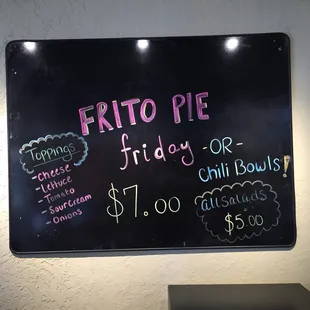 FRITO PIE
friday
-OR-
Chili Bowls!
$7.00
Toppings
-Cheese
-Lettuce
-Tomato
-Sour Cream
-Onions
all Salads
$5.00